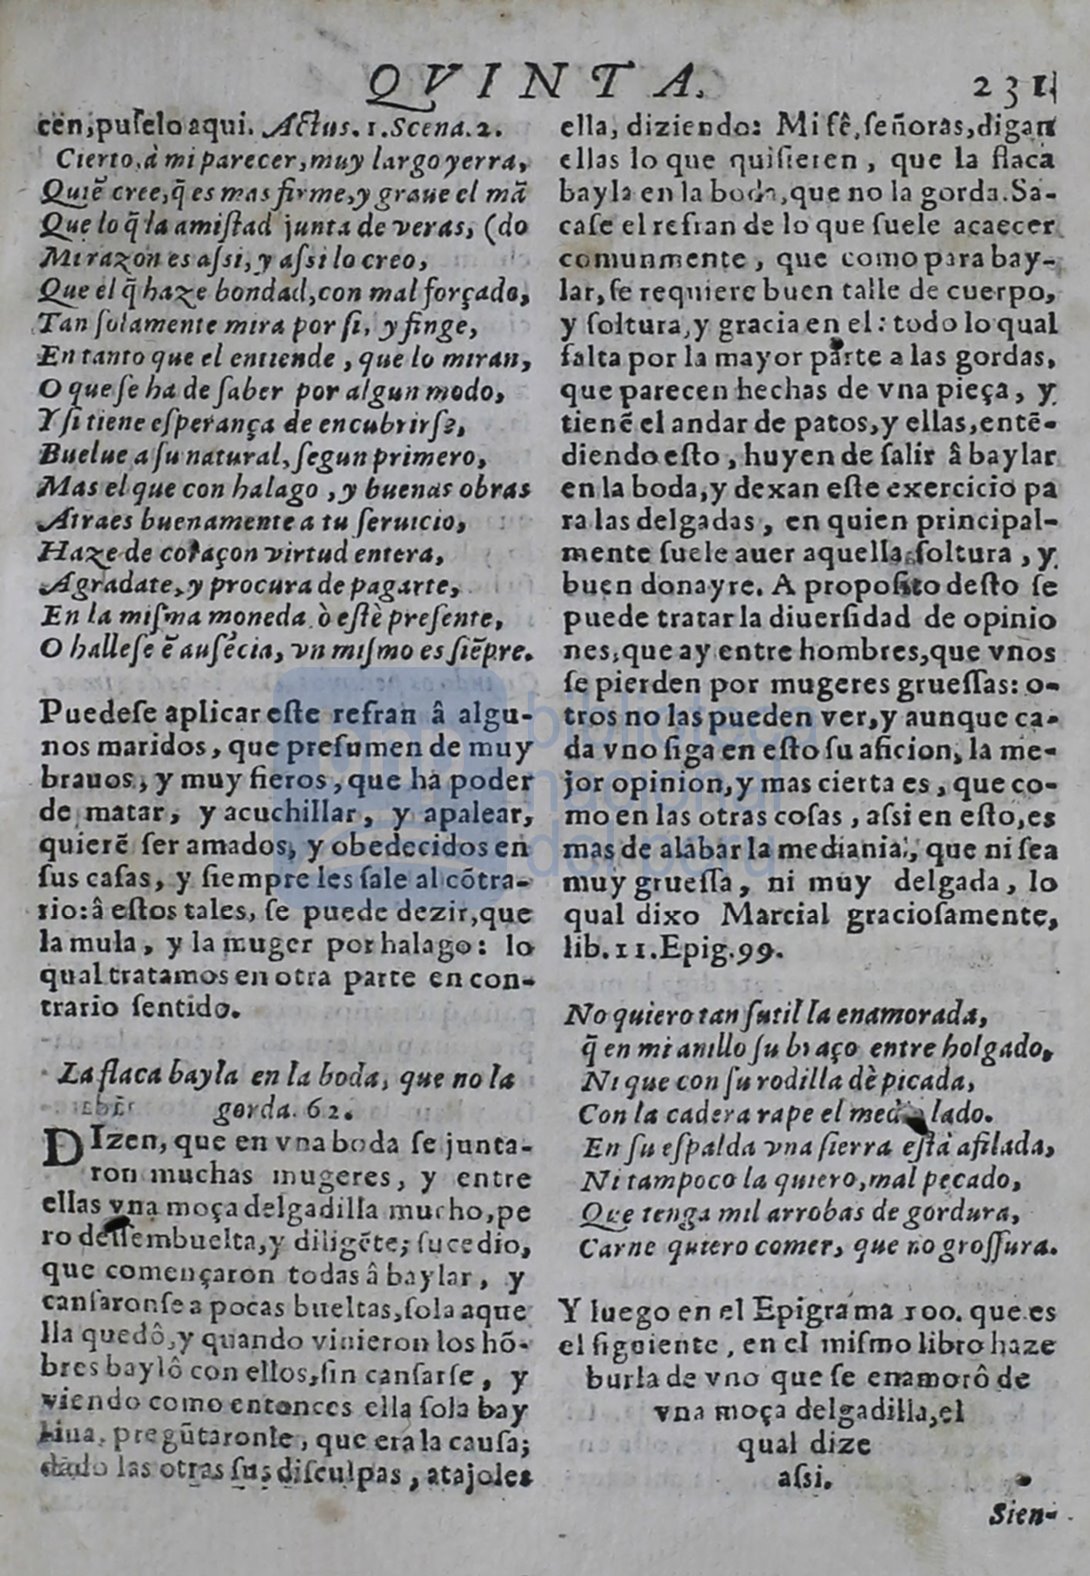 QVINTA. 231
cen, puselo aqui. Actus. 1. Scena. 2.
Cierto, à mi parecer, muy largo yerra,
Quiẽ cree, q̃ es mas firme, y graue el mã
Que lo q̃ la amiſtad junta de veras, (do
Mi razon es aſsi, y aſsi lo creo,
Que el q̃ haze bondad, con mal forçado,
Tan ſolamente mira por ſi, y finge,
En tanto que el entiende, que lo miran,
O que ſe ha de ſaber por algun modo,
Y ſi tiene eſperança de encubrirſe,
Buelue a ſu natural, ſegun primero,
Mas el que con halago, y buenas obras
Atraes buenamente a tu ſeruicio,
Haze de coraçon virtud entera,
Agradate, y procura de pagarte,
En la miſma moneda ò eſtè preſente,
O halleſe ẽ auſẽcia, vn miſmo es ſiẽpre.
Puedeſe aplicar eſte refran â algu-
nos maridos, que preſumen de muy
brauos, y muy fieros, que hà poder
de matar, y acuchillar, y apalear,
quierẽ ſer amados, y obedecidos en
ſus caſas, y ſiempre les ſale al cõtra-
rio: â eſtos tales, ſe puede dezir, que
la mula, y la muger por halago: lo
qual tratamos en otra parte en con-
trario ſentido.
La flaca bayla en la boda, que no la
gorda. 62.
DIzen, que en vna boda ſe junta-
ron muchas mugeres, y entre
ellas vna moça delgadilla mucho, pe
ro deſſembuelta, y diligẽte; ſucedio,
que començaron todas â baylar, y
canſaronſe a pocas bueltas, ſola aque
lla quedô, y quando vinieron los hõ-
bres baylô con ellos, ſin canſarſe, y
viendo como entonces ella ſola bay
laua, pregũtaronle, que era la cauſa;
dãdo las otras ſus diſculpas, atajoles
ella, diziendo: Mi fê, ſeñoras, digan
ellas lo que quiſieren, que la flaca
bayla en la boda, que no la gorda. Sa-
caſe el refran de lo que ſuele acaecer
comunmente, que como para bay-
lar, ſe requiere buen talle de cuerpo,
y ſoltura, y gracia en el: todo lo qual
falta por la mayor parte a las gordas,
que parecen hechas de vna pieça, y
tienẽ el andar de patos, y ellas, entẽ-
diendo eſto, huyen de ſalir â baylar
en la boda, y dexan eſte exercicio pa
ra las delgadas, en quien principal-
mente ſuele auer aquella ſoltura, y
buen donayre. A propoſito deſto ſe
puede tratar la diuerſidad de opinio
nes, que ay entre hombres, que vnos
ſe pierden por mugeres grueſſas: o-
tros no las pueden ver, y aunque ca-
da vno ſiga en eſto ſu aficion, la me-
jor opinion, y mas cierta es, que co-
mo en las otras coſas, aſsi en eſto, es
mas de alabar la mediania, que ni ſea
muy grueſſa, ni muy delgada, lo
qual dixo Marcial gracioſamente,
lib. 11. Epig. 99.
No quiero tan ſutil la enamorada,
q̃ en mi anillo ſu braço entre holgado,
Ni que con ſu rodilla dè picada,
Con la cadera rape el medio lado.
En ſu eſpalda vna ſierra eſtà afilada,
Ni tampoco la quiero, mal pecado,
Que tenga mil arrobas de gordura,
Carne quiero comer, que no groſſura.
Y luego en el Epigrama 100. que es
el ſiguiente, en el miſmo libro haze
burla de vno que ſe enamorô de
vna moça delgadilla, el
qual dize
aſsi.
Sien-
biblioteca
nacional
del perú